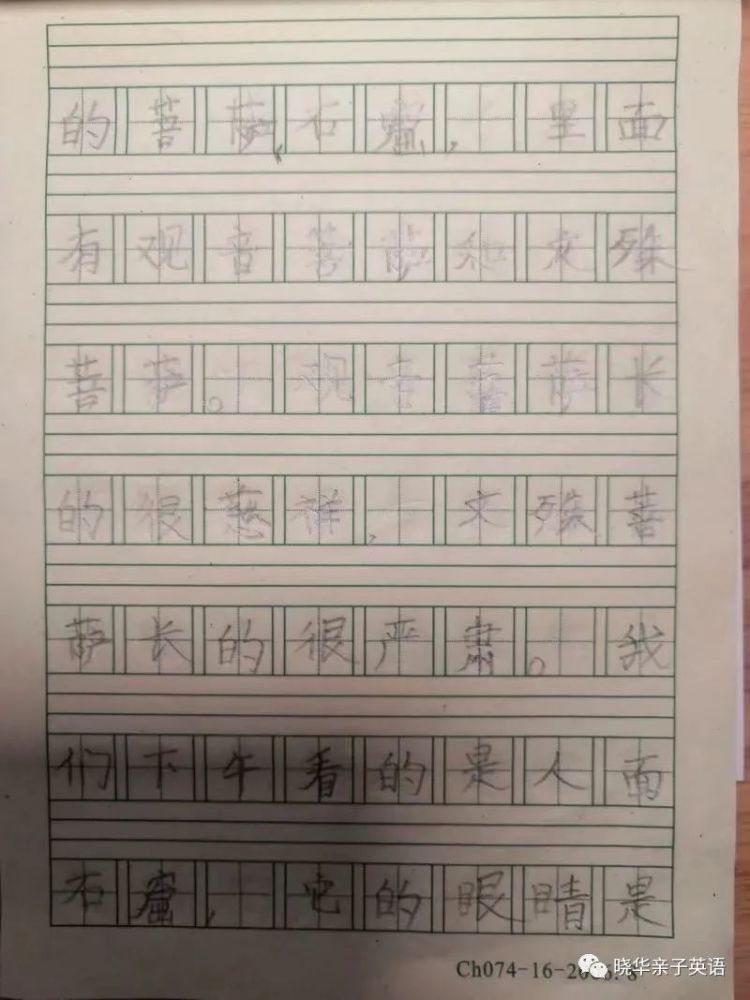 的菩萨石窟,里面
有观音菩萨和文殊
菩萨。观音菩萨长
的很慈祥,文殊菩
萨长的很严肃。我
们下午看的是人面
石窟,它的眼睛是
Ch074-16-20
晓华亲子英语